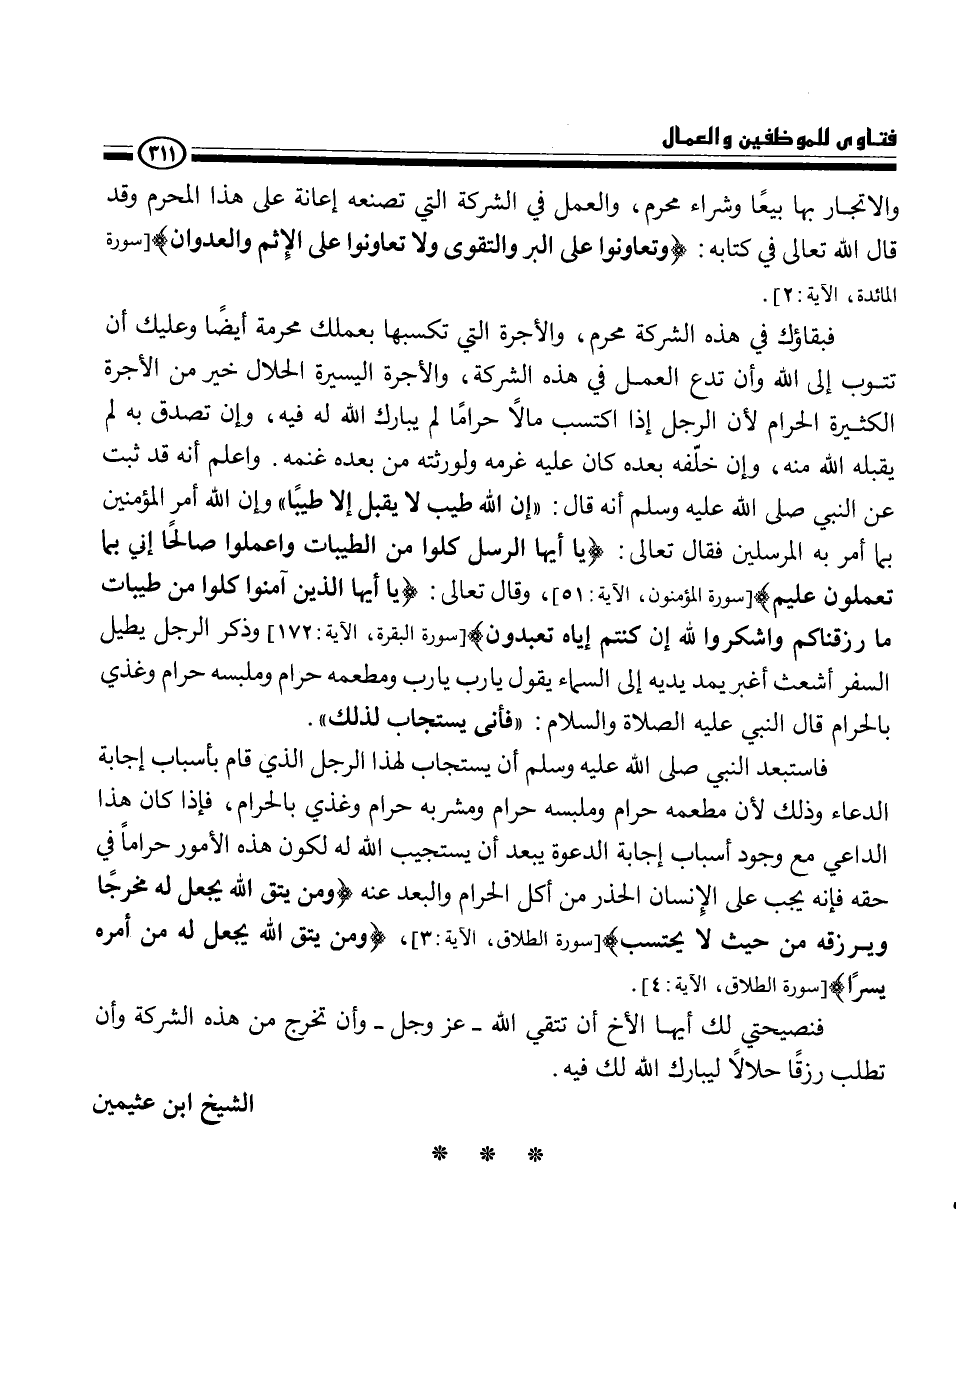 فتاوى للموظفين والعمال
٣١١
والاتجار بها بيعًا وشراء محرم، والعمل في الشركة التي تصنعه إعانة على هذا المحرم وقد
قال الله تعالى في كتابه: ﴿وتعاونوا على البر والتقوى ولا تعاونوا على الإثم والعدوان﴾[سورة
المائدة، الآية:٢].
فبقاؤك في هذه الشركة محرم، والأجرة التي تكسبها بعملك محرمة أيضًا وعليك أن
تتوب إلى الله وأن تدع العمل في هذه الشركة، والأجرة اليسيرة الحلال خير من الأجرة
الكثيرة الحرام لأن الرجل إذا اكتسب مالًا حرامًا لم يبارك الله له فيه، وإن تصدق به لم
يقبله الله منه، وإن خلّفه بعده كان عليه غرمه ولورثته من بعده غنمه. واعلم أنه قد ثبت
عن النبي صلى الله عليه وسلم أنه قال: «إن الله طيب لا يقبل إلا طيبًا» وإن الله أمر المؤمنين
بما أمر به المرسلين فقال تعالى: ﴿يا أيها الرسل كلوا من الطيبات واعملوا صالحًا إني بما
تعملون عليم﴾[سورة المؤمنون، الآية:٥١]، وقال تعالى: ﴿يا أيها الذين آمنوا كلوا من طيبات
ما رزقناكم واشكروا لله إن كنتم إياه تعبدون﴾[سورة البقرة، الآية:١٧٢] وذكر الرجل يطيل
السفر أشعث أغبر يمد يديه إلى السماء يقول يارب يارب ومطعمه حرام وملبسه حرام وغذي
بالحرام قال النبي عليه الصلاة والسلام: «فأنى يستجاب لذلك».
فاستبعد النبي صلى الله عليه وسلم أن يستجاب لهذا الرجل الذي قام بأسباب إجابة
الدعاء وذلك لأن مطعمه حرام وملبسه حرام ومشربه حرام وغذي بالحرام، فإذا كان هذا
الداعي مع وجود أسباب إجابة الدعوة يبعد أن يستجيب الله له لكون هذه الأمور حراماً في
حقه فإنه يجب على الإنسان الحذر من أكل الحرام والبعد عنه ﴿ومن يتق الله يجعل له مخرجًا
ويرزقه من حيث لا يحتسب﴾[سورة الطلاق، الآية:٣]، ﴿ومن يتق الله يجعل له من أمره
يسرًا﴾[سورة الطلاق، الآية:٤].
فنصيحتي لك أيها الأخ أن تتقي الله ـ عز وجل ـ وأن تخرج من هذه الشركة وأن
تطلب رزقًا حلالًا ليبارك الله لك فيه.
الشيخ ابن عثيمين
* * *